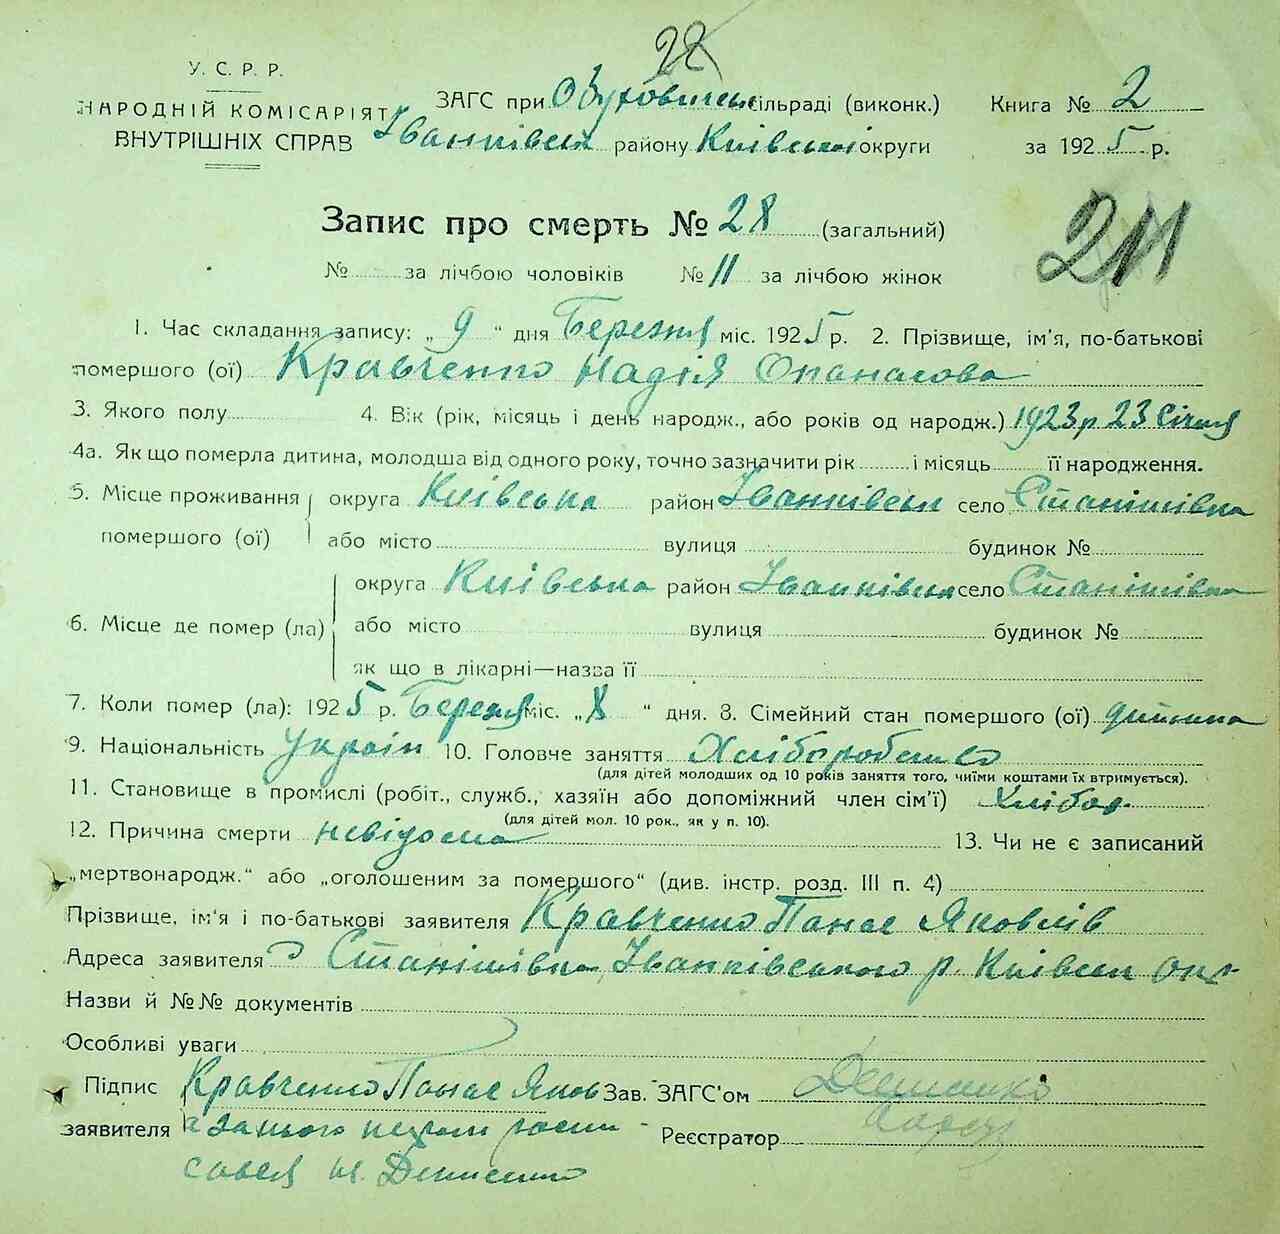 28
У. С. Р. Р.
НАРОДНІЙ КОМІСАРІЯТ
ВНУТРІШНІХ СПРАВ
ЗАГС при Обуховицькій сільраді (виконк.)
Іванківськ району Київської округи
Книга № 2
за 1925 р.
Запис про смерть № 28 (загальний)
211
№ за лічбою чоловіків № 11 за лічбою жінок
1. Час складання запису: „ 9 “ дня Березня міс. 1925 р. 2. Прізвище, ім'я, по-батькові
помершого (ої) Кравченко Надія Опанасова
3. Якого полу 4. Вік (рік, місяць і день народж., або років од народж.) 1923 р 23 Січня
4а. Як що померла дитина, молодша від одного року, точно зазначити рік і місяць її народження.
5. Місце проживання помершого (ої) округа Київська район Іванківськ село Станішівка
або місто вулиця будинок №
6. Місце де помер (ла) округа Київська район Іванківськ село Станішівка
або місто вулиця будинок №
як що в лікарні—назва її
7. Коли помер (ла): 1925 р. Березня міс. „ 8 “ дня. 8. Сімейний стан помершого (ої) дитина
9. Національність Україн 10. Головче заняття Хліборобство
(для дітей молодших од 10 років заняття того, чиїми коштами їх втримується).
11. Становище в промислі (робіт., служб., хазяїн або допоміжний член сім'ї) Хлібор
(для дітей мол. 10 рок., як у п. 10).
12. Причина смерти невідома 13. Чи не є записаний
„мертвонародж.“ або „оголошеним за помершого“ (див. інстр. розд. III п. 4)
Прізвище, ім'я і по-батькові заявителя Кравченко Панас Яковлів
Адреса заявителя Станішівка Іванківського р. Київськ окр
Назви й №№ документів
Особливі уваги
Підпис заявителя Кравченко Панас Яков
Зав. ЗАГС'ом
а за нього негром
Реєстратор